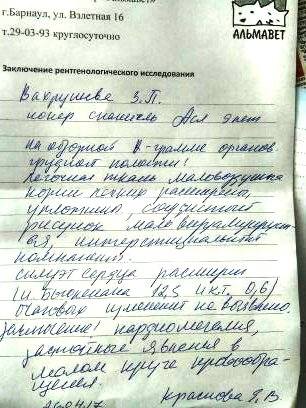 г.Барнаул, ул. Взлетная 16
т.29-03-93 круглосуточно
АЛЬМАВЕТ
Заключение рентгенологического исследования
Вахрушева З.П.
кокер спаниель Ася 9 лет
на обзорной R-грамме органов
грудной полости:
Легочная ткань маловоздушна
корни легких расширены,
уплотнены, сосудистый
рисунок мало
интерстициальный
компонент.
силуэт сердца расширен
(и. Бьюкенена 12,5 икт. 0,6)
очаговых изменений не выявлено.
Заключение: кардиомегалия,
застойные явления в
малом круге кровообра-
щения.
Краснова Я.В.